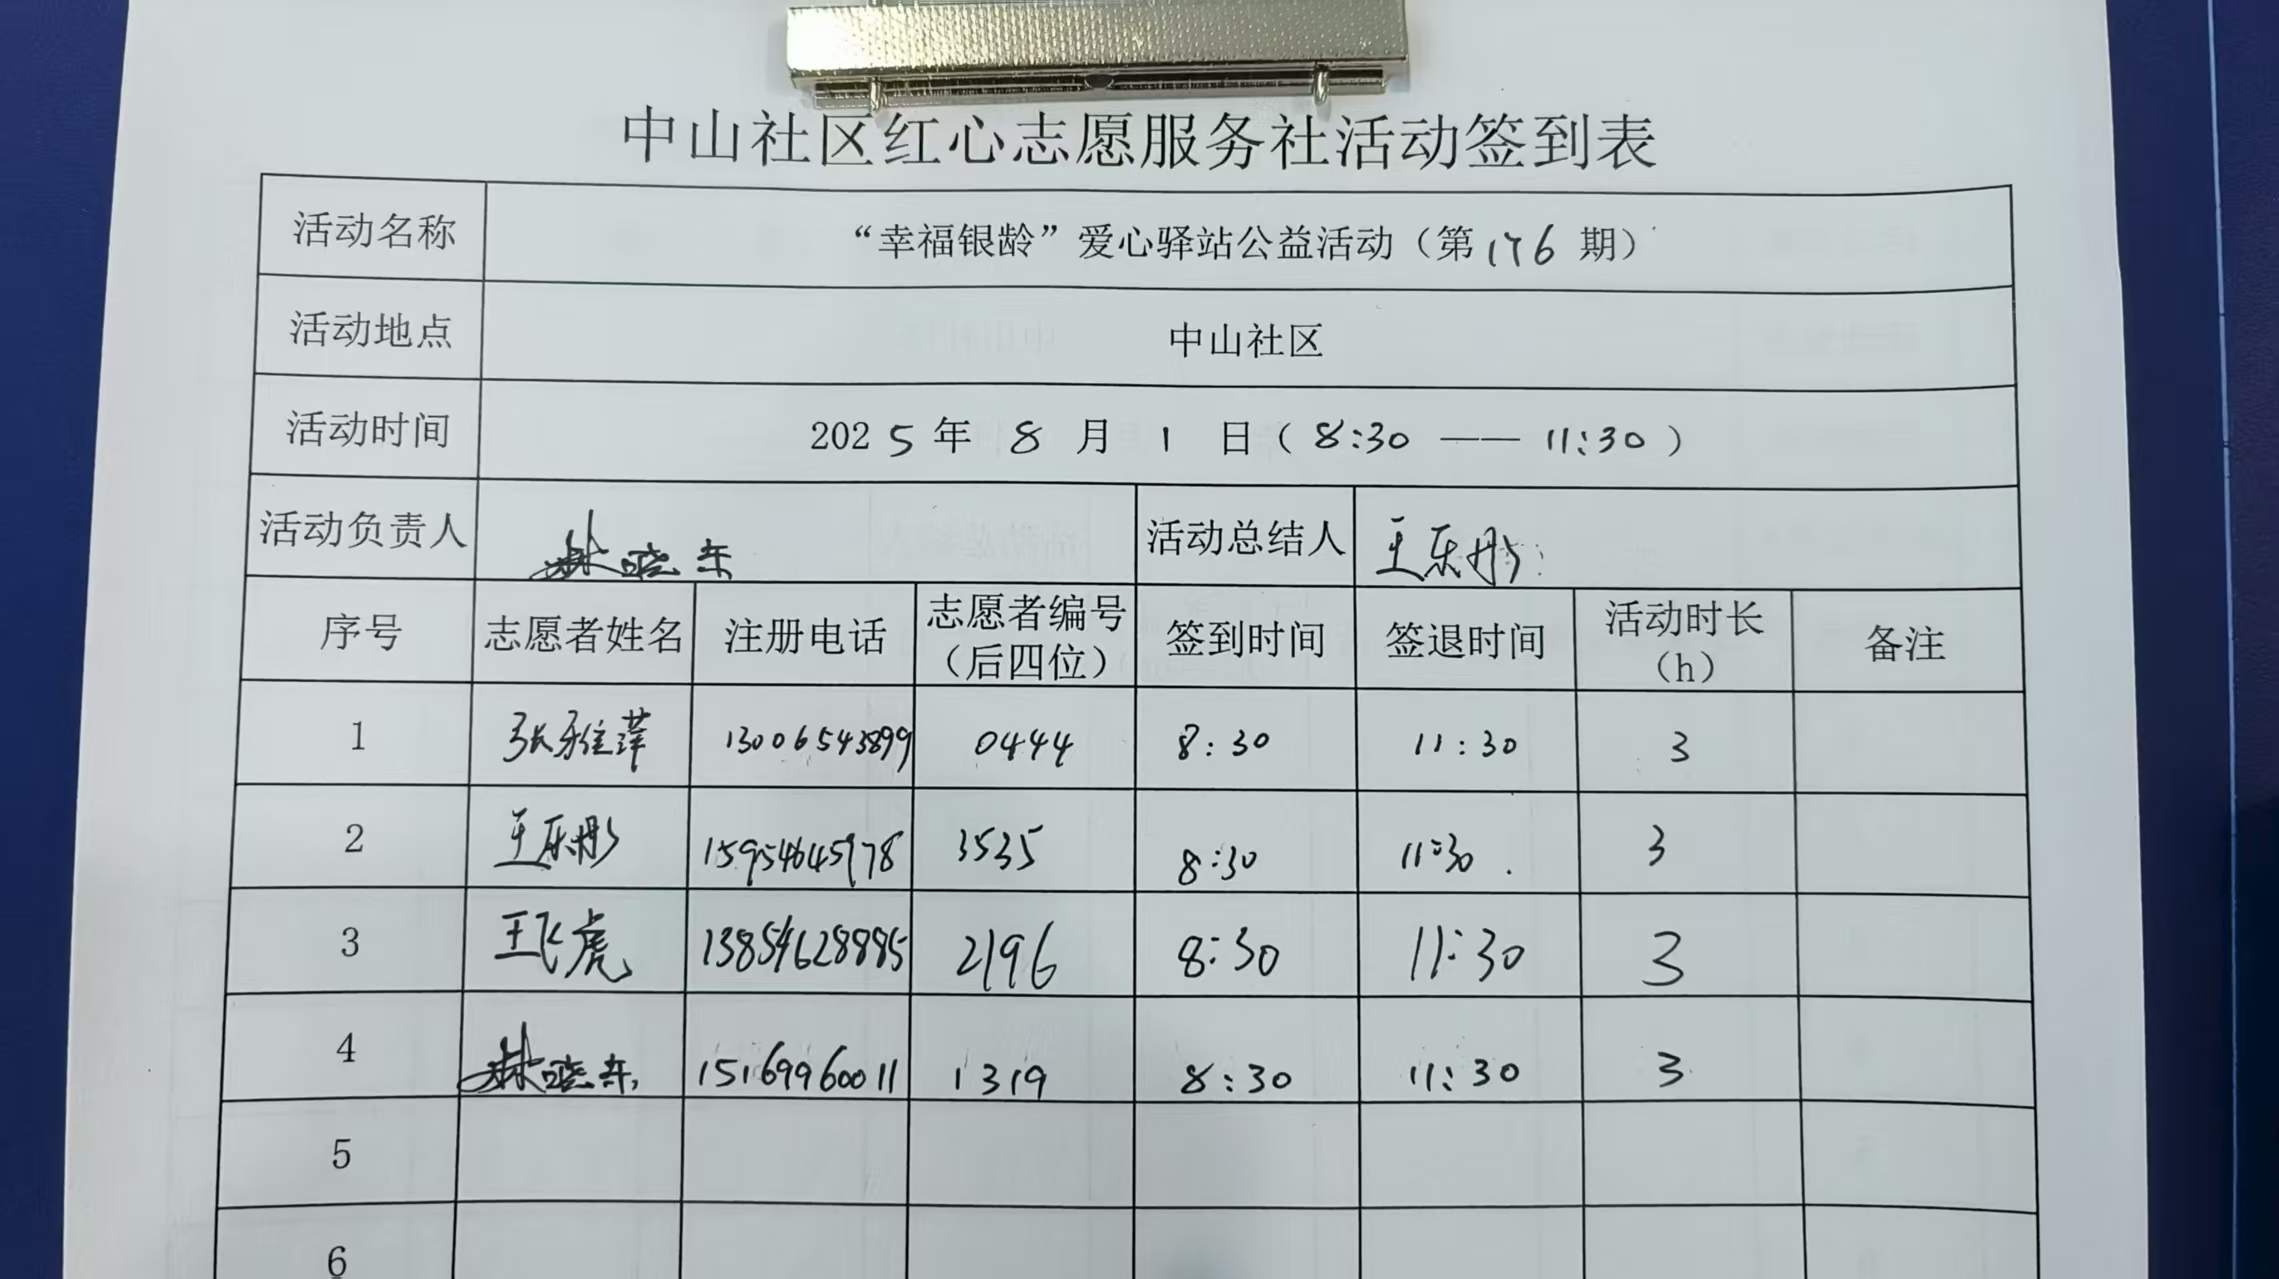 中山社区红心志愿服务社活动签到表
活动名称 “幸福银龄”爱心驿站公益活动（第176期）
活动地点 中山社区
活动时间 2025年8月1日（8:30——11:30）
活动负责人 林晓东 活动总结人 王乐彤
序号 志愿者姓名 注册电话 志愿者编号（后四位） 签到时间 签退时间 活动时长（h） 备注
1 张雅萍 13006543899 0444 8:30 11:30 3
2 王乐彤 15954645978 3535 8:30 11:30 3
3 王飞虎 13854628885 2196 8:30 11:30 3
4 林晓东 15169960011 1319 8:30 11:30 3
5
6